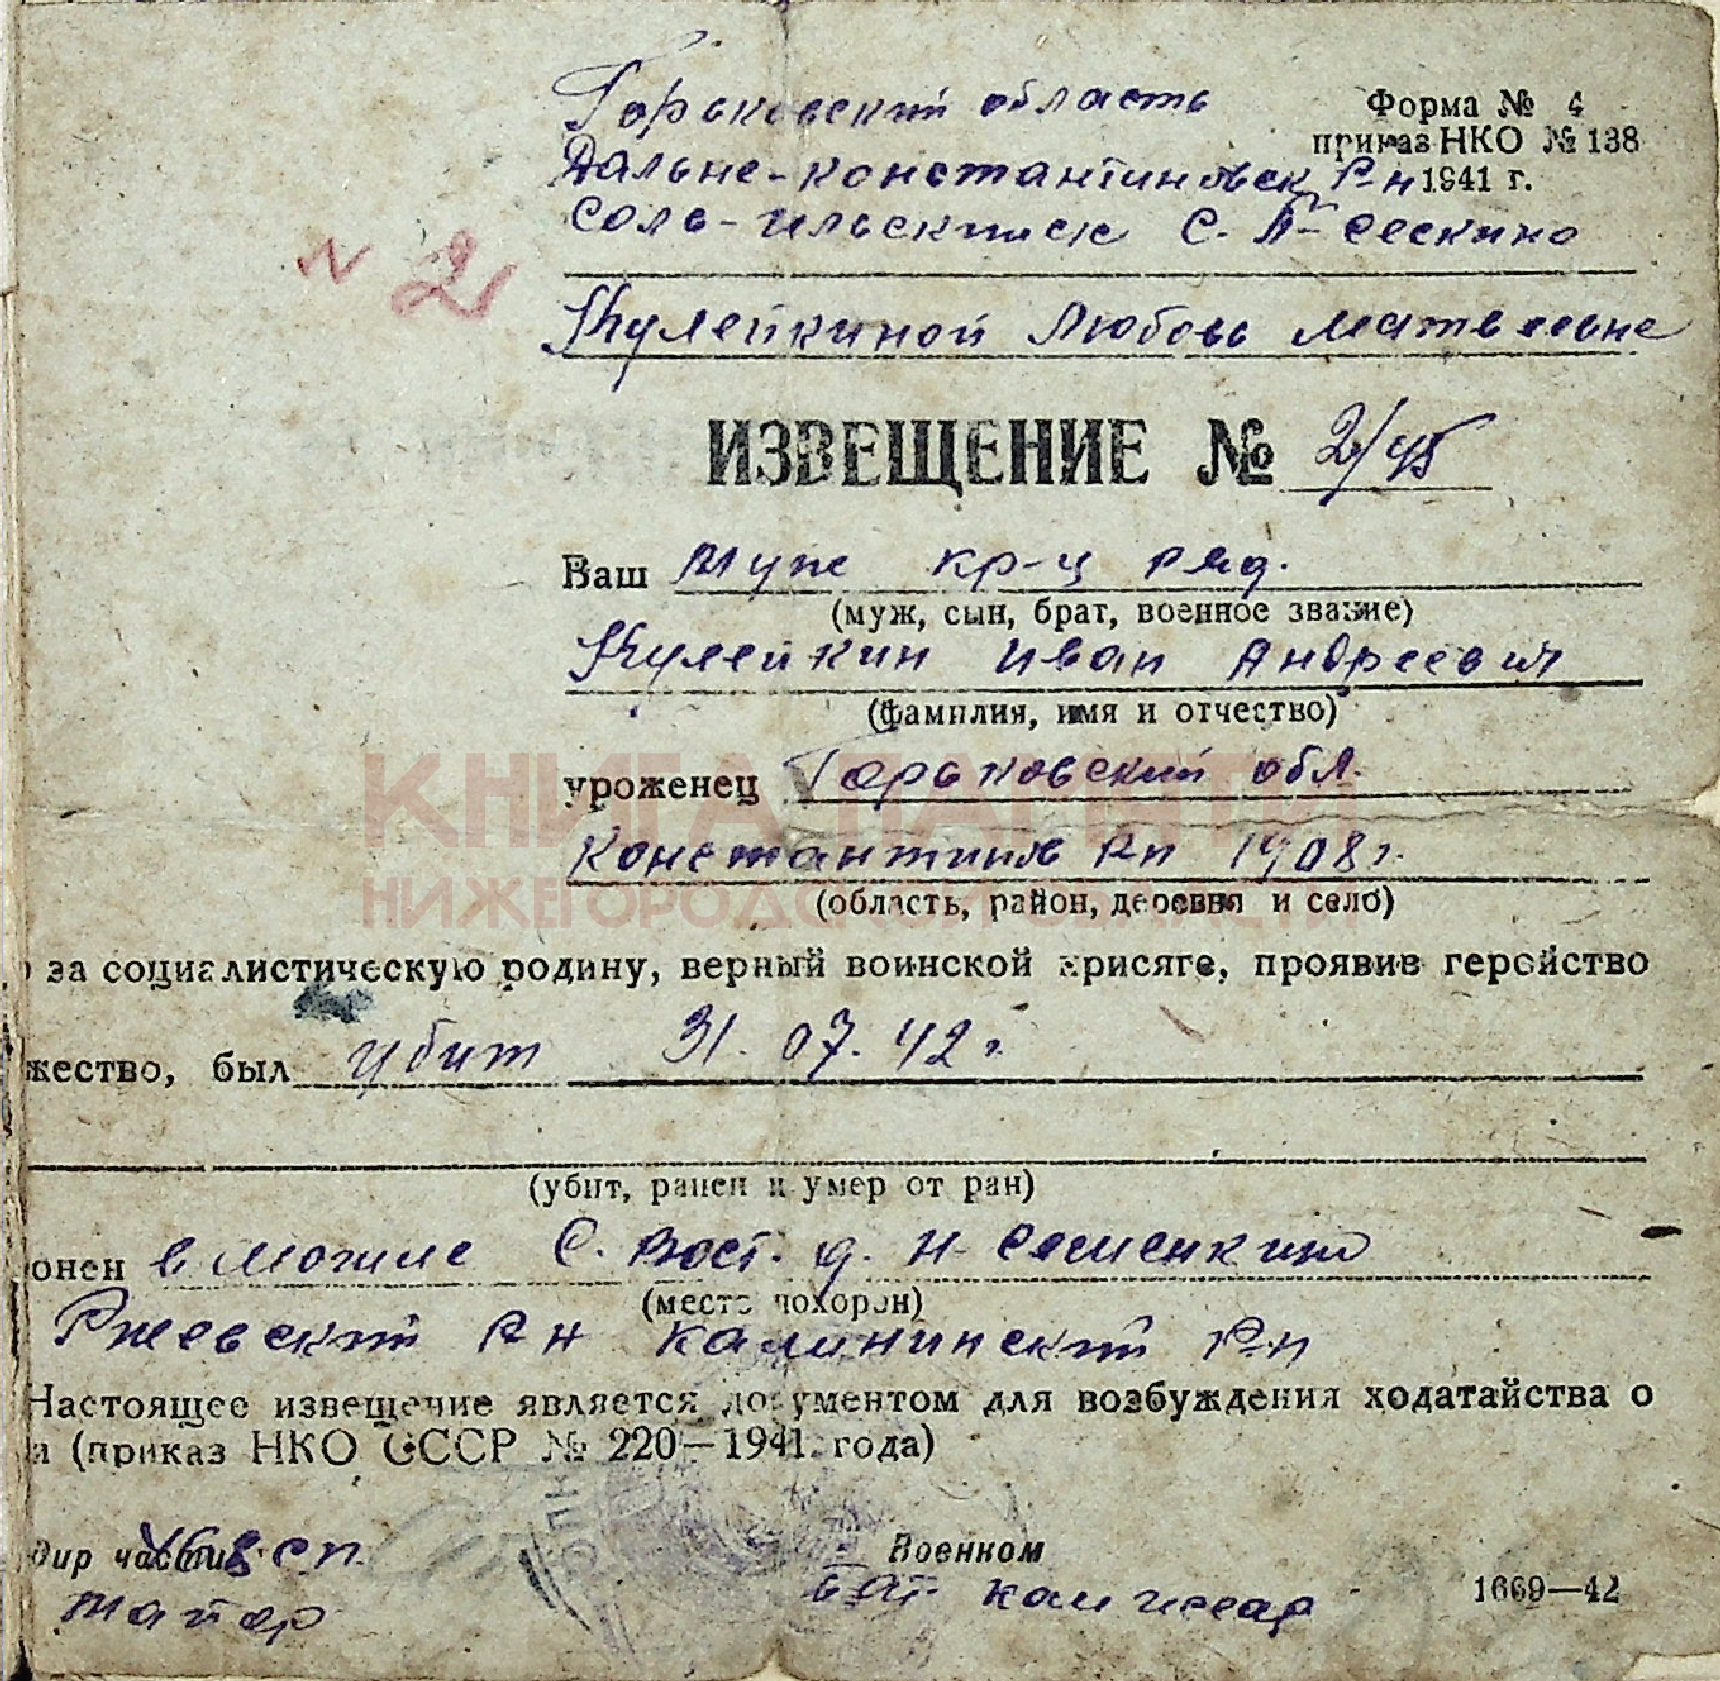 Горьковский область
Форма № 4
приказ НКО № 138
Дальне-Константиновск Р-н 1941 г.
Соль- С. Л- Сескино
Кулейкиной Любовь Матвеевне
N 2
ИЗВЕЩЕНИЕ № 2/45
Ваш муж кр-ц ряд.
(муж, сын, брат, военное звание)
Кулейкин Иван Андреевич
(фамилия, имя и отчество)
КНИГА ПАМЯТИ
уроженец Горьковский обл.
Константинов Р-н 1908 г.
НИЖЕГОРОДСКОЙ ОБЛАСТИ
(область, район, деревня и село)
за социалистическую родину, верный воинской присяге, проявив геройство
жество, был убит 31.07.42 г.
(убит, ранен и умер от ран)
онен в могиле С. Вост. д. Н- Семенкино
(место похорон)
Ржевский Р-н Калининский Р-н
Настоящее извещение является документом для возбуждения ходатайства о
и (приказ НКО СССР № 220—1941 года)
дир части сп.
Военком
майор
бат комиссар
1669—42